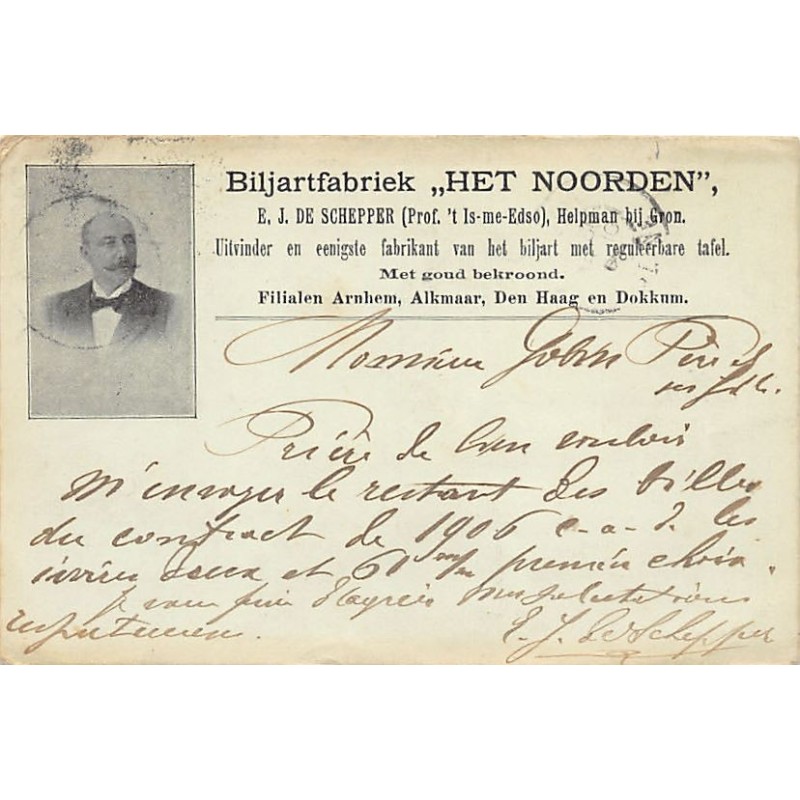 Biljartfabriek „HET NOORDEN”,
E. J. DE SCHEPPER (Prof. 't Is-me-Edso), Helpman bij Gron.
Uitvinder en eenigste fabrikant van het biljart met reguleerbare tafel.
Met goud bekroond.
Filialen Arnhem, Alkmaar, Den Haag en Dokkum.
Monsieur Père &
Prière de bien vouloir
m'envoyer le restant des billes
du contract de 1906 c-a-d. les
et 60 m/m premier choix.
Je vous prie d'agréer mes salutations
E. J. de Schepper